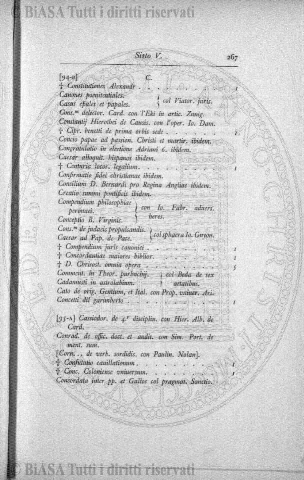 © BiASA Tutti i diritti riservati
Sisto V. 267
[94-B] C.
⁂ Constitutiones Alexandr. . . . . . . . 1
Canones poenitentiales.
Casus epales et papales. } col Viator. juris.
Cons.ⁿᵉ delector. Card. con l'Eki in artic. Zuing.
Constantij Hierothei de Canais. con l'oper. Io. Dam.
Cipr. beneti de prima orbis sede . . . . . . 1
Concio papae ad passion. Christi et martir. ibidem.
Congratulatio in electione Adriani 6. ibidem.
Caesar alloquit. hispanas ibidem.
Centuria locor. legalium. . . . . . . . 1
Confirmatio fidei christianae ibidem.
Consilium D. Bernardi pro Regina Angliae ibidem.
Creatio summi pontificis ibidem.
Compendium philosophiae
Conceptio B. Virginis. } con Io. Fabr. advers.
Cons.ⁿᵉ de judaeis propulsandis.
Caesar ad Pap. de Pace. } col sphaera Io. Girum.
Compendium juris canonici . . . . . . . 1
Concordantiae maiores biblior. . . . . . 1
D. Chrisost. omnia opera . . . . . . . 5
Comment. in Theor. purbachij.
Cadamusti in astrolabium. } col Beda de sex aetatibus.
Cato de orig. Gentium, et Ital. con Prop. variar. Aris.
Concetti del garimberto . . . . . . . 1
[95-A] Cassiodor. de 4.ᵒʳ disciplin. con Hier. Alb. de
Card.
Conrad. de offic. doct. et audit. con Sim. Port. de
ment. hum.
[Corn. . de verb. sordidis. con Paulin. Nolan].
Confutatio cavillationum . . . . . . . 1
Conc. Coloniense universum. . . . . . . 1
Concordata inter pp. et Gallos col pragmat. Sanctio.
© BiASA Tutti i diritti riservati